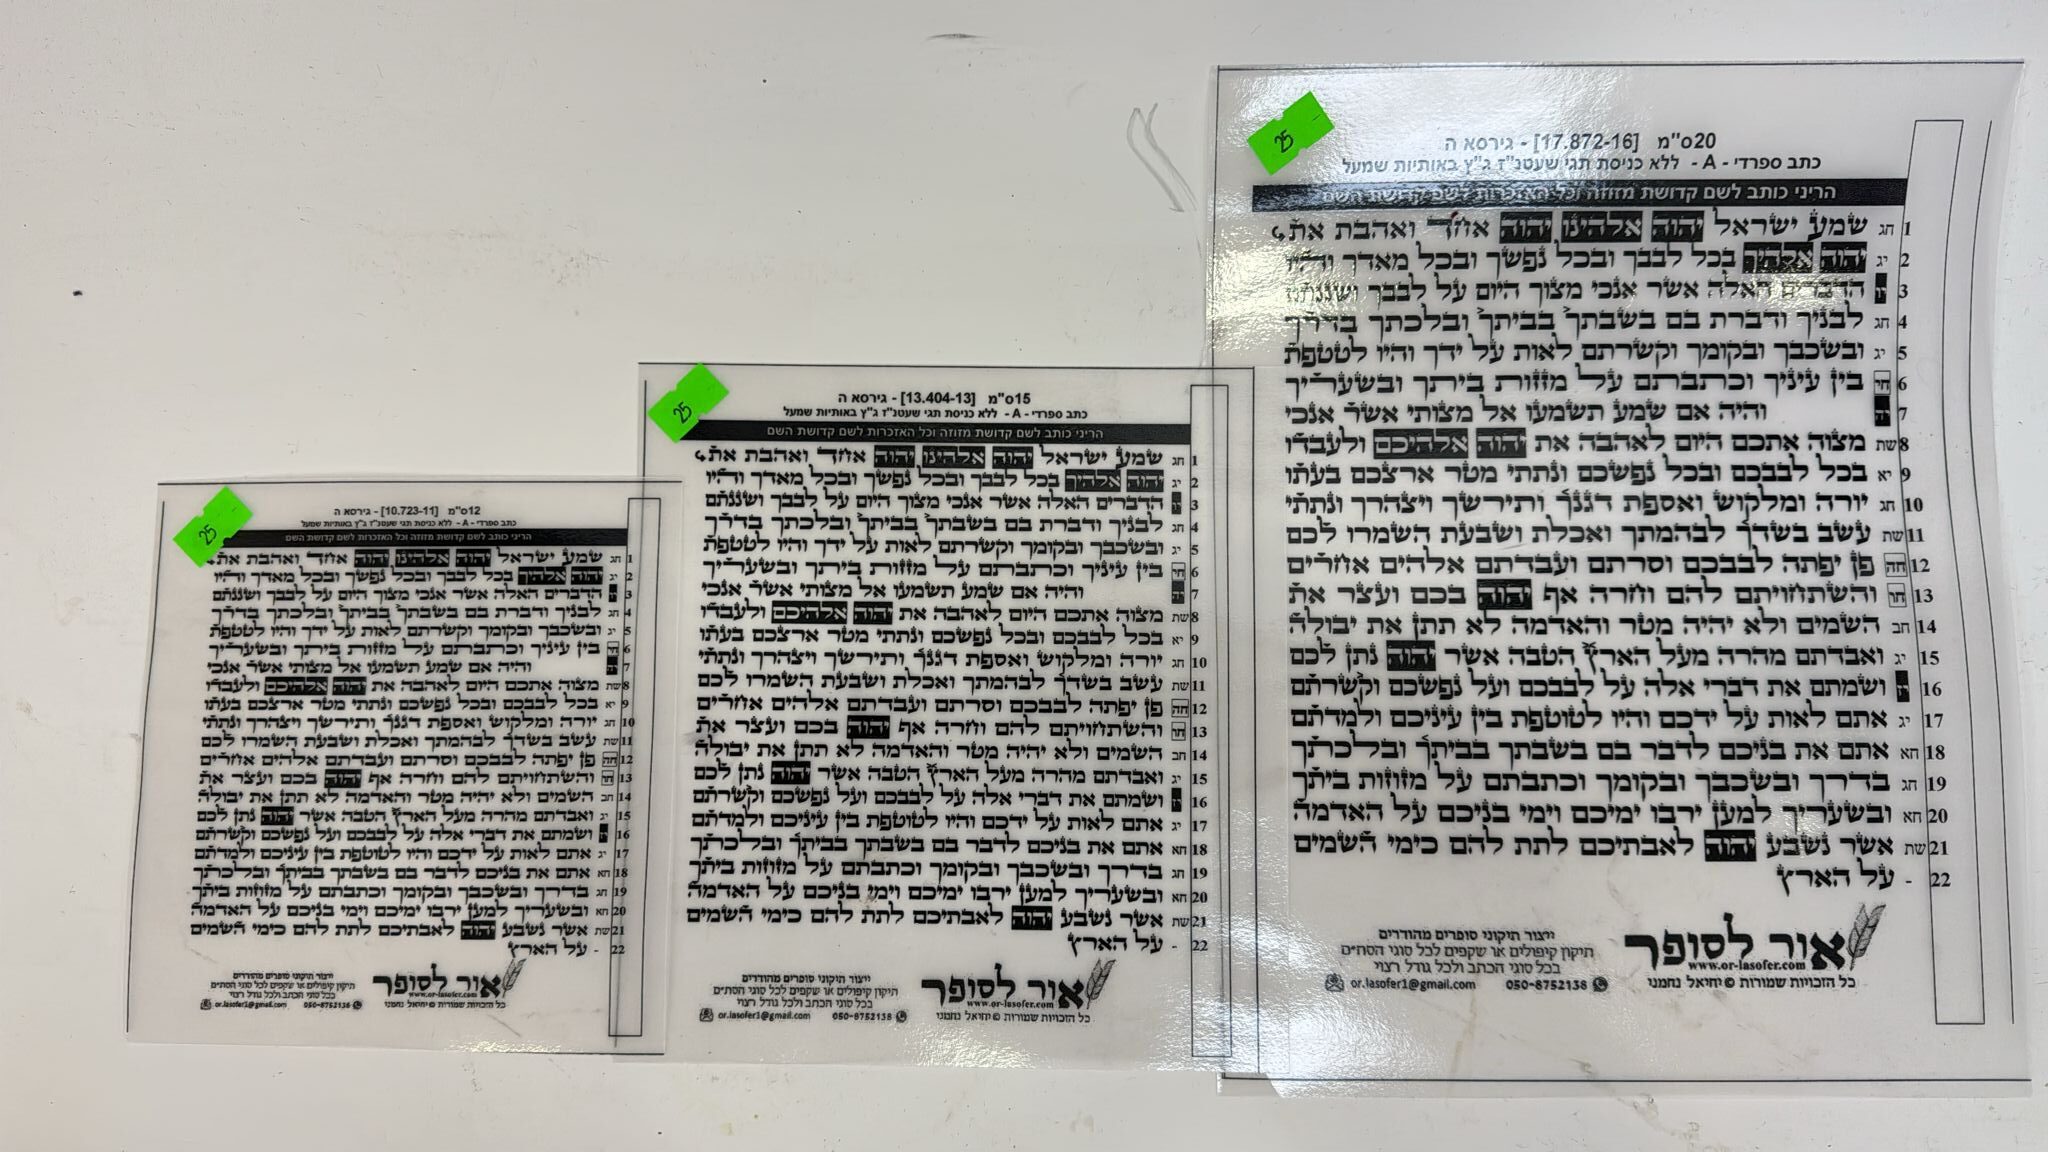 25
12ס"מ [10.723-11] - גירסא ה
כתב ספרדי - A - ללא כניסת תגי שעטנ"ז ג"ץ באותיות שמעל
הריני כותב לשם קדושת מזוזה וכל האזכרות לשם קדושת השם
1 חג שמע ישראל יהוה אלהינו יהוה אחד ואהבת את
2 יג יהוה אלהיך בכל לבבך ובכל נפשך ובכל מאדך והיו
3 הדברים האלה אשר אנכי מצוך היום על לבבך ושננתם
4 חג לבניך ודברת בם בשבתך בביתך ובלכתך בדרך
5 יג ובשכבך ובקומך וקשרתם לאות על ידך והיו לטטפת
6 חי בין עיניך וכתבתם על מזזות ביתך ובשעריך
7 והיה אם שמע תשמעו אל מצותי אשר אנכי
8 שת מצוה אתכם היום לאהבה את יהוה אלהיכם ולעבדו
9 יא בכל לבבכם ובכל נפשכם ונתתי מטר ארצכם בעתו
10 חג יורה ומלקוש ואספת דגנך ותירשך ויצהרך ונתתי
11 שת עשב בשדך לבהמתך ואכלת ושבעת השמרו לכם
12 חה פן יפתה לבבכם וסרתם ועבדתם אלהים אחרים
13 חו והשתחויתם להם וחרה אף יהוה בכם ועצר את
14 חב השמים ולא יהיה מטר והאדמה לא תתן את יבולה
15 יג ואבדתם מהרה מעל הארץ הטבה אשר יהוה נתן לכם
16 ושמתם את דברי אלה על לבבכם ועל נפשכם וקשרתם
17 יג אתם לאות על ידכם והיו לטוטפת בין עיניכם ולמדתם
18 חא אתם את בניכם לדבר בם בשבתך בביתך ובלכתך
19 חג בדרך ובשכבך ובקומך וכתבתם על מזוזות ביתך
20 חא ובשעריך למען ירבו ימיכם וימי בניכם על האדמה
21 שת אשר נשבע יהוה לאבתיכם לתת להם כימי השמים
22 - על הארץ
אור לסופר
www.or-lasofer.com
כל הזכויות שמורות © יחיאל נחמני
ייצור תיקוני סופרים מהודרים
תיקון קיפולים או שקפים לכל סוגי הסת"ם
בכל סוגי הכתב ולכל גודל רצוי
050-8752138 or.lasofer1@gmail.com
25
15ס"מ [13.404-13] - גירסא ה
כתב ספרדי - A - ללא כניסת תגי שעטנ"ז ג"ץ באותיות שמעל
הריני כותב לשם קדושת מזוזה וכל האזכרות לשם קדושת השם
1 חג שמע ישראל יהוה אלהינו יהוה אחד ואהבת את
2 יג יהוה אלהיך בכל לבבך ובכל נפשך ובכל מאדך והיו
3 הדברים האלה אשר אנכי מצוך היום על לבבך ושננתם
4 חג לבניך ודברת בם בשבתך בביתך ובלכתך בדרך
5 יג ובשכבך ובקומך וקשרתם לאות על ידך והיו לטטפת
6 חי בין עיניך וכתבתם על מזזות ביתך ובשעריך
7 והיה אם שמע תשמעו אל מצותי אשר אנכי
8 שת מצוה אתכם היום לאהבה את יהוה אלהיכם ולעבדו
9 יא בכל לבבכם ובכל נפשכם ונתתי מטר ארצכם בעתו
10 חג יורה ומלקוש ואספת דגנך ותירשך ויצהרך ונתתי
11 שת עשב בשדך לבהמתך ואכלת ושבעת השמרו לכם
12 חה פן יפתה לבבכם וסרתם ועבדתם אלהים אחרים
13 חו והשתחויתם להם וחרה אף יהוה בכם ועצר את
14 חב השמים ולא יהיה מטר והאדמה לא תתן את יבולה
15 יג ואבדתם מהרה מעל הארץ הטבה אשר יהוה נתן לכם
16 ושמתם את דברי אלה על לבבכם ועל נפשכם וקשרתם
17 יג אתם לאות על ידכם והיו לטוטפת בין עיניכם ולמדתם
18 חא אתם את בניכם לדבר בם בשבתך בביתך ובלכתך
19 חג בדרך ובשכבך ובקומך וכתבתם על מזוזות ביתך
20 חא ובשעריך למען ירבו ימיכם וימי בניכם על האדמה
21 שת אשר נשבע יהוה לאבתיכם לתת להם כימי השמים
22 - על הארץ
אור לסופר
www.or-lasofer.com
כל הזכויות שמורות © יחיאל נחמני
ייצור תיקוני סופרים מהודרים
תיקון קיפולים או שקפים לכל סוגי הסת"ם
בכל סוגי הכתב ולכל גודל רצוי
050-8752138 or.lasofer1@gmail.com
25
20ס"מ [17.872-16] - גירסא ה
כתב ספרדי - A - ללא כניסת תגי שעטנ"ז ג"ץ באותיות שמעל
הריני כותב לשם קדושת מזוזה וכל האזכרות לשם קדושת השם
1 חג שמע ישראל יהוה אלהינו יהוה אחד ואהבת את
2 יג יהוה אלהיך בכל לבבך ובכל נפשך ובכל מאדך והיו
3 הדברים האלה אשר אנכי מצוך היום על לבבך ושננתם
4 חג לבניך ודברת בם בשבתך בביתך ובלכתך בדרך
5 יג ובשכבך ובקומך וקשרתם לאות על ידך והיו לטטפת
6 חי בין עיניך וכתבתם על מזזות ביתך ובשעריך
7 והיה אם שמע תשמעו אל מצותי אשר אנכי
8 שת מצוה אתכם היום לאהבה את יהוה אלהיכם ולעבדו
9 יא בכל לבבכם ובכל נפשכם ונתתי מטר ארצכם בעתו
10 חג יורה ומלקוש ואספת דגנך ותירשך ויצהרך ונתתי
11 שת עשב בשדך לבהמתך ואכלת ושבעת השמרו לכם
12 חה פן יפתה לבבכם וסרתם ועבדתם אלהים אחרים
13 חו והשתחויתם להם וחרה אף יהוה בכם ועצר את
14 חב השמים ולא יהיה מטר והאדמה לא תתן את יבולה
15 יג ואבדתם מהרה מעל הארץ הטבה אשר יהוה נתן לכם
16 ושמתם את דברי אלה על לבבכם ועל נפשכם וקשרתם
17 יג אתם לאות על ידכם והיו לטוטפת בין עיניכם ולמדתם
18 חא אתם את בניכם לדבר בם בשבתך בביתך ובלכתך
19 חג בדרך ובשכבך ובקומך וכתבתם על מזוזות ביתך
20 חא ובשעריך למען ירבו ימיכם וימי בניכם על האדמה
21 שת אשר נשבע יהוה לאבתיכם לתת להם כימי השמים
22 - על הארץ
אור לסופר
www.or-lasofer.com
כל הזכויות שמורות © יחיאל נחמני
ייצור תיקוני סופרים מהודרים
תיקון קיפולים או שקפים לכל סוגי הסת"ם
בכל סוגי הכתב ולכל גודל רצוי
050-8752138 or.lasofer1@gmail.com